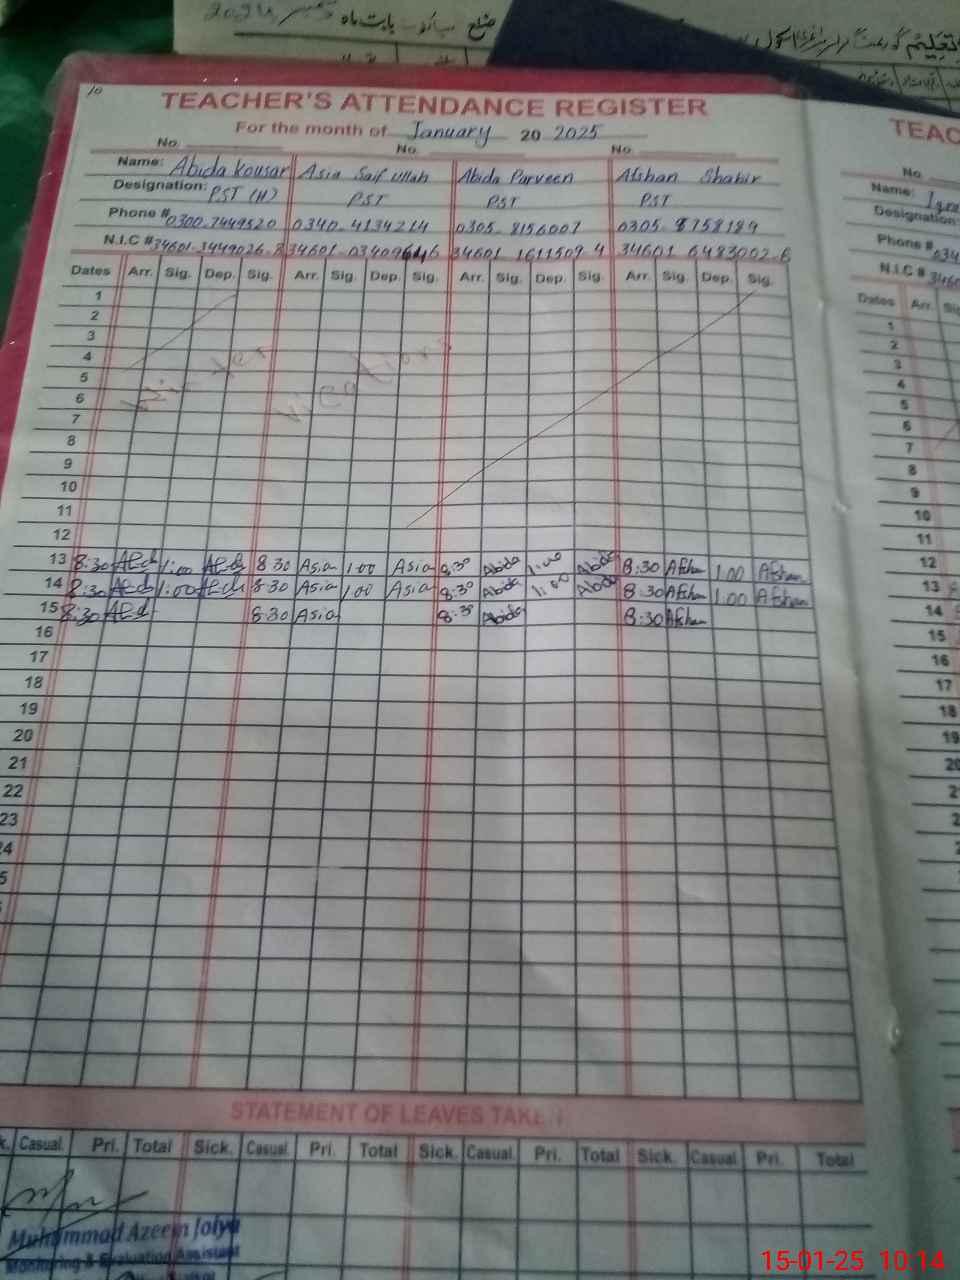 تعلیم گورنمنٹ
ضلع
بابت ماہ
2024
10
TEACHER'S ATTENDANCE REGISTER
For the month of January 20 2025
No. No. No.
Name: Abida Kousar Asia Saif ullah Abida Parveen Afshan Shabir
Designation: PST (H) PST PST PST
Phone # 0300-7449520 0340-4134214 0305-8156007 0305-8758189
N.I.C # 34601-3449026-8 34601-0340964-6 34601 1611509 4 34601 6483002-6
Dates Arr. Sig. Dep. Sig. Arr. Sig. Dep. Sig. Arr. Sig. Dep. Sig. Arr. Sig. Dep. Sig.
1
2
3
4
5 Winter Vications
6
7
8
9
10
11
12
13 8:30 1:00 8 30 Asia 1:00 Asia 8:30 Abida 1:00 Abida 8:30 Afshan 1.00 Afshan
14 8:30 1:00 8:30 Asia 1:00 Asia 8:30 Abida 1:00 Abida 8:30 Afshan 1:00 Afshan
15 8:30 8:30 Asia 8:30 Abida 8:30 Afshan
16
17
18
19
20
21
22
23
24
5
STATEMENT OF LEAVES TAKEN
k. Casual Pri. Total Sick. Casual Pri. Total Sick. Casual Pri. Total Sick. Casual Pri. Total
Muhammad Azeem Joiya
Monitoring & Evaluation Assistant
TEAC
No.
Name: Iqra
Designation
Phone # 034
N.I.C # 3460
Dates Arr. Sig
1
2
3
4
5
6
7
8
9
10
11
12
13
14
15
16
17
18
19
20
21
22
23
15-01-25 10:14